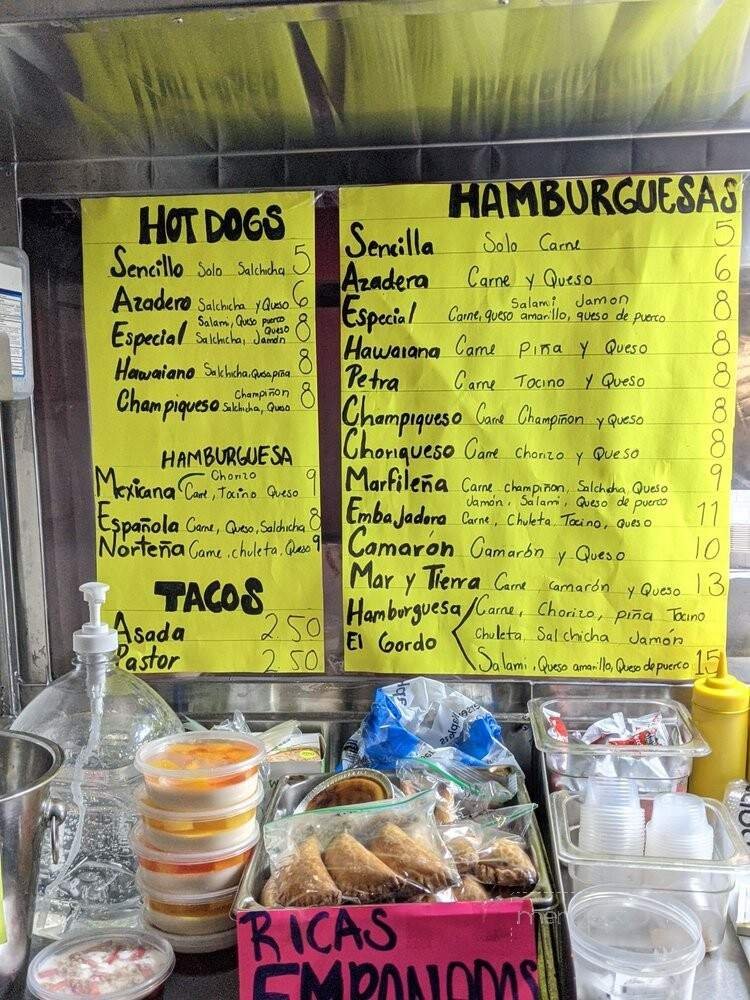 HOT DOGS
Sencillo Solo Salchicha 5
Azadero Salchicha y Queso 6
Salami, Queso puerco
Especial Salchicha, Jamón Queso 8
Hawaiano Salchicha, Queso, piña 8
Champiñon
Champiqueso Salchicha, Queso 8
HAMBURGUESA
Chorizo
Mexicana Carne, Tocino Queso 9
Española Carne, Queso, Salchicha 8
Norteña Carne, chuleta, Queso 9
TACOS
Asada 2.50
Pastor 2.50
HAMBURGUESAS
Sencilla Solo Carne 5
Azadera Carne y Queso 6
Salami Jamon
Especial Carne, queso amarillo, queso de puerco 8
Hawaiana Carne piña y Queso 8
Petra Carne Tocino y Queso 8
Champiqueso Carne Champiñon y Queso 8
Choriqueso Carne chorizo y Queso 8
Marfileña Carne champiñon, Salchicha, Queso 9
Jamón, Salami, Queso de puerco
Embajadora Carne, Chuleta, Tocino, queso 11
Camarón Camarón y Queso 10
Mar y Tierra Carne camarón y Queso 13
Hamburguesa Carne, Chorizo, piña Tocino
El Gordo Chuleta Salchicha Jamón
Salami, Queso amarillo, Queso de puerco 15
RICAS
EMPANADAS